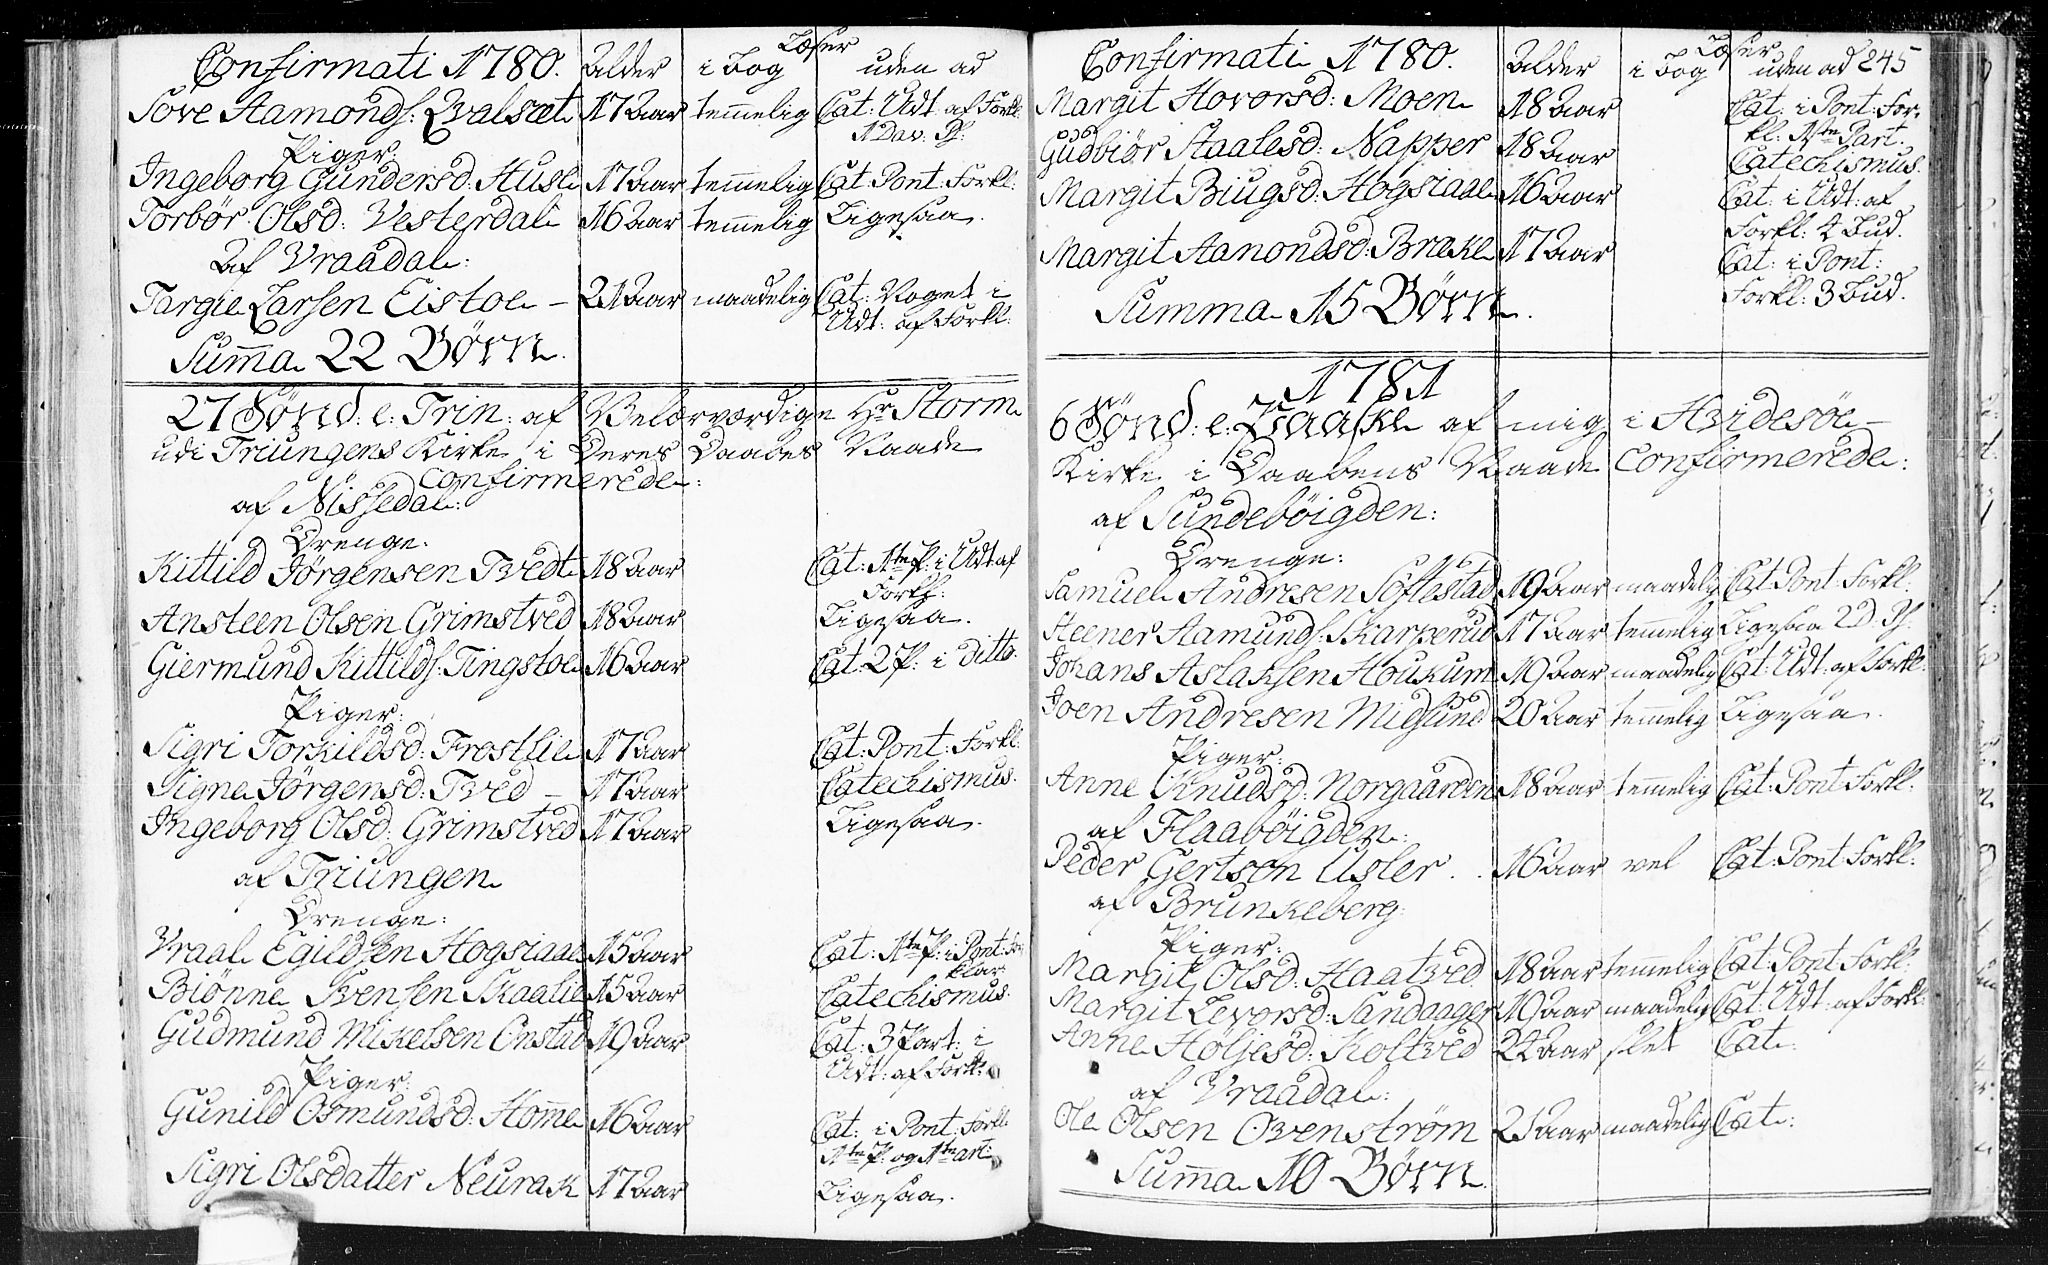 Confirmati 1780. Alder Læser i bog uden ad
Tove Aamonds: Qvalsæt 17 Aar temmelig Cat: Udt: af Forkl:
1 Dav: Ps:
Piger:
Ingeborg Gundersd: Huse 17 Aar temmelig Cat: Pont: Forkl:
Torbør Olsd: Vesterdal 16 Aar temmelig Ligesaa.
Af Vraadal:
Targie Larsen Eistoe — 21 Aar maadelig Cat: Noget i
Udt: af Forkl:
Summa 22 Børn.
27 Sønd: e: Trin: af Velærværdige Hr Storm
udi Triungens Kirke i Deres Daabes Naade
confirmerede:
af Nissedal:
Drenge:
Kittild Jørgensen Tvedt 18 Aar Cat: 1te P: i Udt af
Forkl:
Ansteen Olsen Grimstved 18 Aar Ligesaa.
Giermund Kittilds: Tingstoe 16 Aar Cat: 2 P: i ditto.
Piger:
Sigri Torkildsd: Frostlie 17 Aar Cat: Pont: Forkl:
Signe Jørgensd: Tved — 17 Aar Catechismus.
Ingeborg Olsd: Grimstved 17 Aar Ligesaa.
af Triungen
Drenge:
Vraal Egildsen Hogsiaae 15 Aar Cat: 1te P: i Pont: For
klar:
Biønne Svensen Skaalie 15 Aar Catechismus.
Gudmund Mikelsen Onstad 19 Aar Cat: 3 Part: i
Udt: af Forkl:
Piger:
Gunild Osmundsd: Homme 16 Aar Cat: i Pont: Forkl:
1te P: og 1te art:
Sigri Olsdatter Neurak 17 Aar Ligesaa.
Confirmati 1780. Alder Læser i bog uden ad 245
Margit Hovorsd: Moen 18 Aar Cat: i Pont: For-
kl: 1te Part.
Gudbiør Staalesd: Napper 18 Aar Catechismus.
Margit Biugsd: Hogsiaae 16 Aar Cat: i Udt: af
Forkl: 4 Bud.
Margit Aanondsd: Bræke 17 Aar Cat: i Pont:
Forkl: 3 Bud.
Summa 15 Børn.
1781
6 Sønd: e: Paaske af mig i Hvidesøe
Kirke i Daabens Naade Confirmerede:
af Sundebøigden:
Drenge:
Samuel Andresen Søftestad 19 Aar maadelig Cat Pont: Forkl:
Steener Aamunds: Skarperud 17 Aar temmelig Ligesaa 2 D. Ps.
Johans Aslaksen Houkum 19 Aar maadelig Cat: Udt: af Forkl:
Joen Andresen Midsund 20 Aar temmelig Ligesaa.
Piger:
Anne Knudsd: Norgaarden 18 Aar temmelig Cat: Pont Forkl:
af Flaabøigden:
Peder Gertson Usler . 16 Aar vel Cat: Pont Forkl:
af Brunkeberg:
Piger:
Margit Olsd: Haatved 18 Aar temmelig Cat: Pont Forkl:
Margit Levorsd: Sandaager 19 Aar maadelig Cat: Udt: af Forkl:
Anne Høljesd: Koltved 22 Aar slet Cat:
af Vraadal:
Ole Olsen Ovenstrøm 21 Aar maadelig Cat:
Summa 10 Børn.